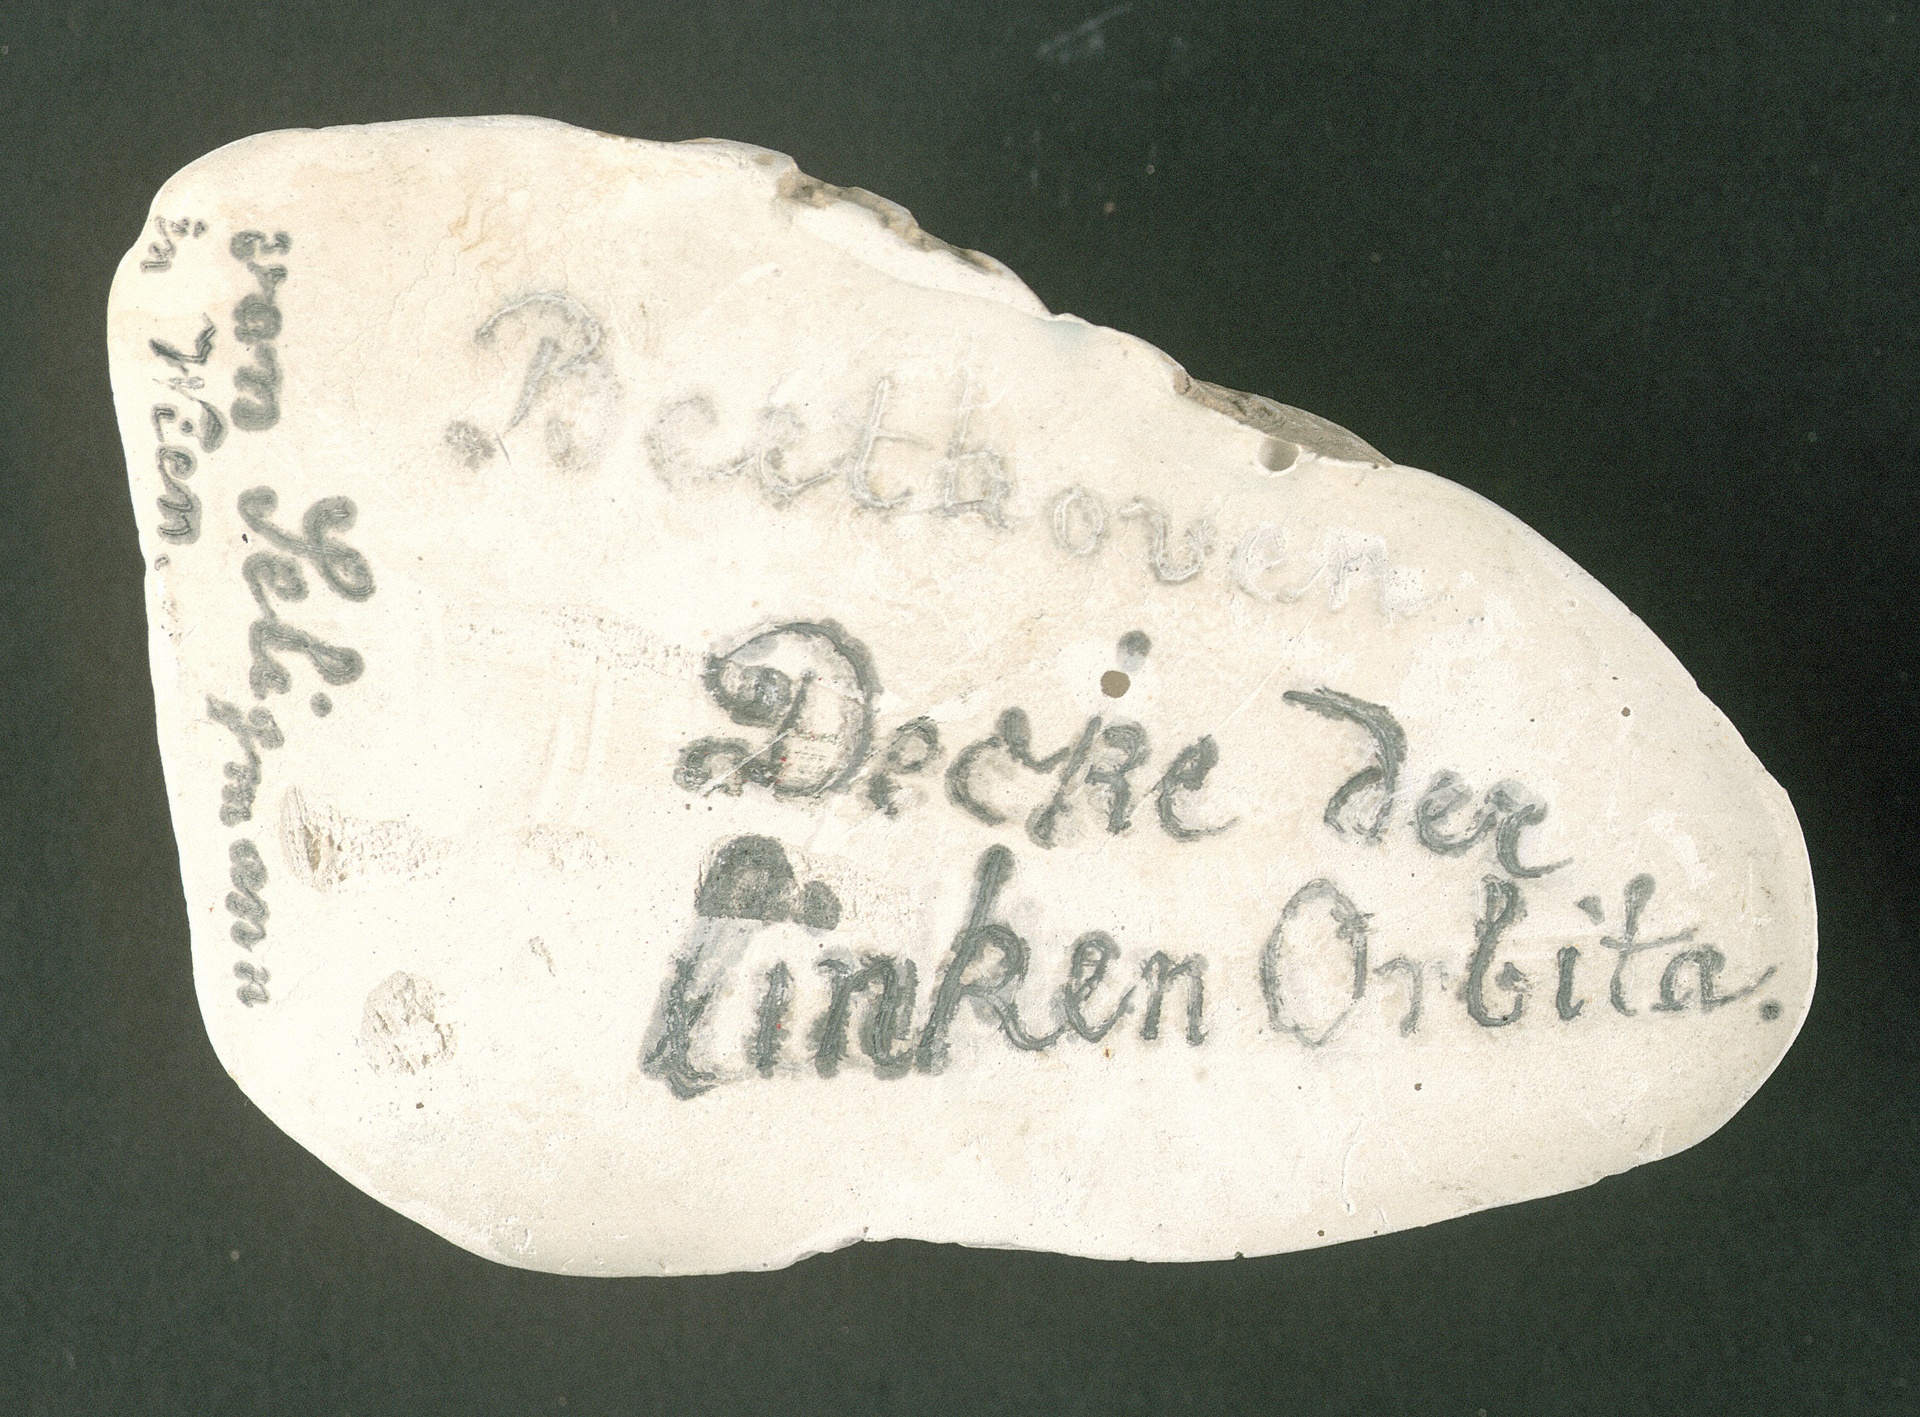 Beethoven
Decke der
linken Orbita.
von Seligmann
in Wien.